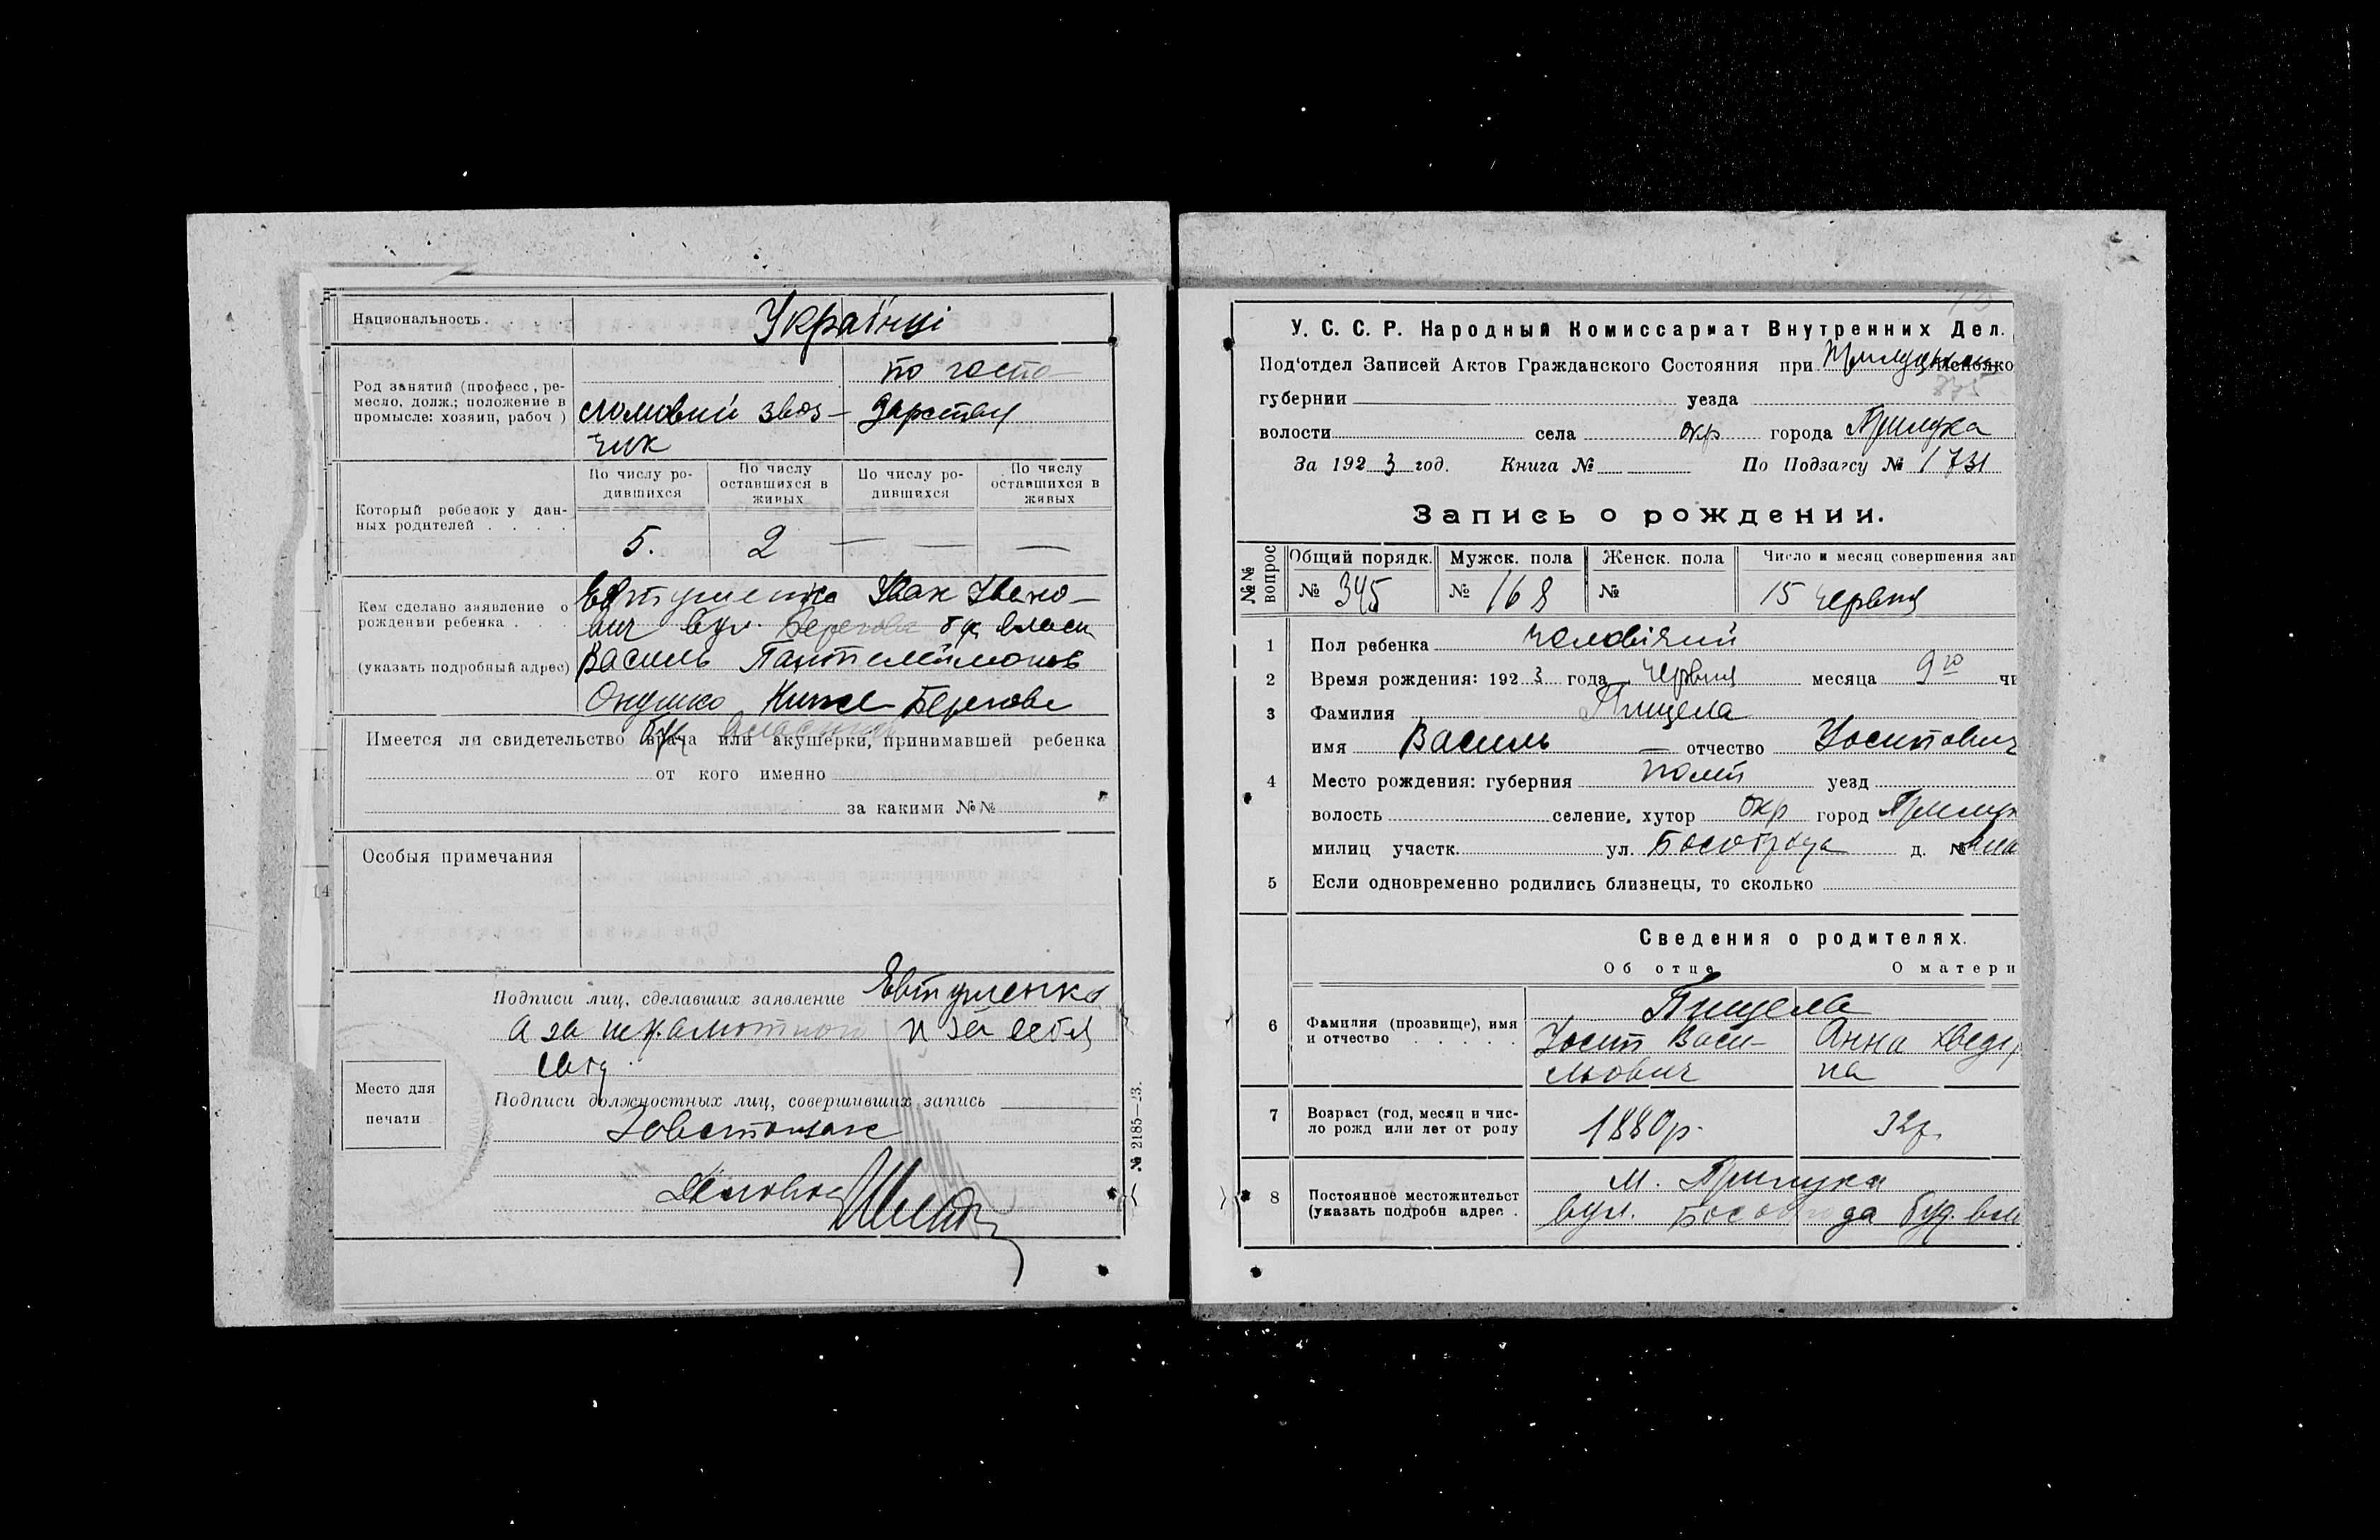 Национальность . . . . Українці
Род занятий (професс, ре-
месло, долж.; положение в
промысле: хозяин, рабоч )
ломовий звоз-
чик
по госпо-
дарству
Который ребенок у дан-
ных родителей . . . .
По числу ро-
дившихся
По числу
оставшихся в
живых
По числу ро-
дившихся
По числу
оставшихся в
живых
5. 2 — — —
Кем сделано заявление о
рождении ребенка . . .
(указать подробный адрес)
Евтушенко Иван Ивано-
вич вул. Берегова
Василь
Берегова
Имеется ли свидетельство врача или акушерки, принимавшей ребенка
от кого именно
за какими №№
Особыя примечания
Подписи лиц, сделавших заявление Евтушенко
а за неграмотного и за себя
Подписи должностных лиц, совершивших запись
Место для
печати
№ 2185—23.
У. С. С. Р. Народный Комиссариат Внутренних Дел.
Под'отдел Записей Актов Гражданского Состояния при
губернии уезда
волости села окр города Прилука
За 1923 год. Книга № По Подзагсу № 1731
Запись о рождении.
№№ вопрос
Общий порядк. Мужск. пола Женск. пола Число и месяц совершения зап
№ 345 № 168 № 15 червня
1 Пол ребенка чоловічий
2 Время рождения: 1923 года червня месяца 9го чи
3 Фамилия Пищела
имя Василь — отчество Йосипович
4 Место рождения: губерния Полт уезд
волость селение, хутор окр город Прилук
милиц участк. ул. д. №
5 Если одновременно родились близнецы, то сколько
Сведения о родителях.
Об отце О матери
6 Фамилия (прозвище), имя
и отчество . . . . .
Пищела
Йосип Васи-
льович
Анна
на
7 Возраст (год, месяц и чис-
ло рожд или лет от роду
1880р. 32р.
8 Постоянное местожительст
(указать подробн адрес .
м. Прилука
вул. буд.